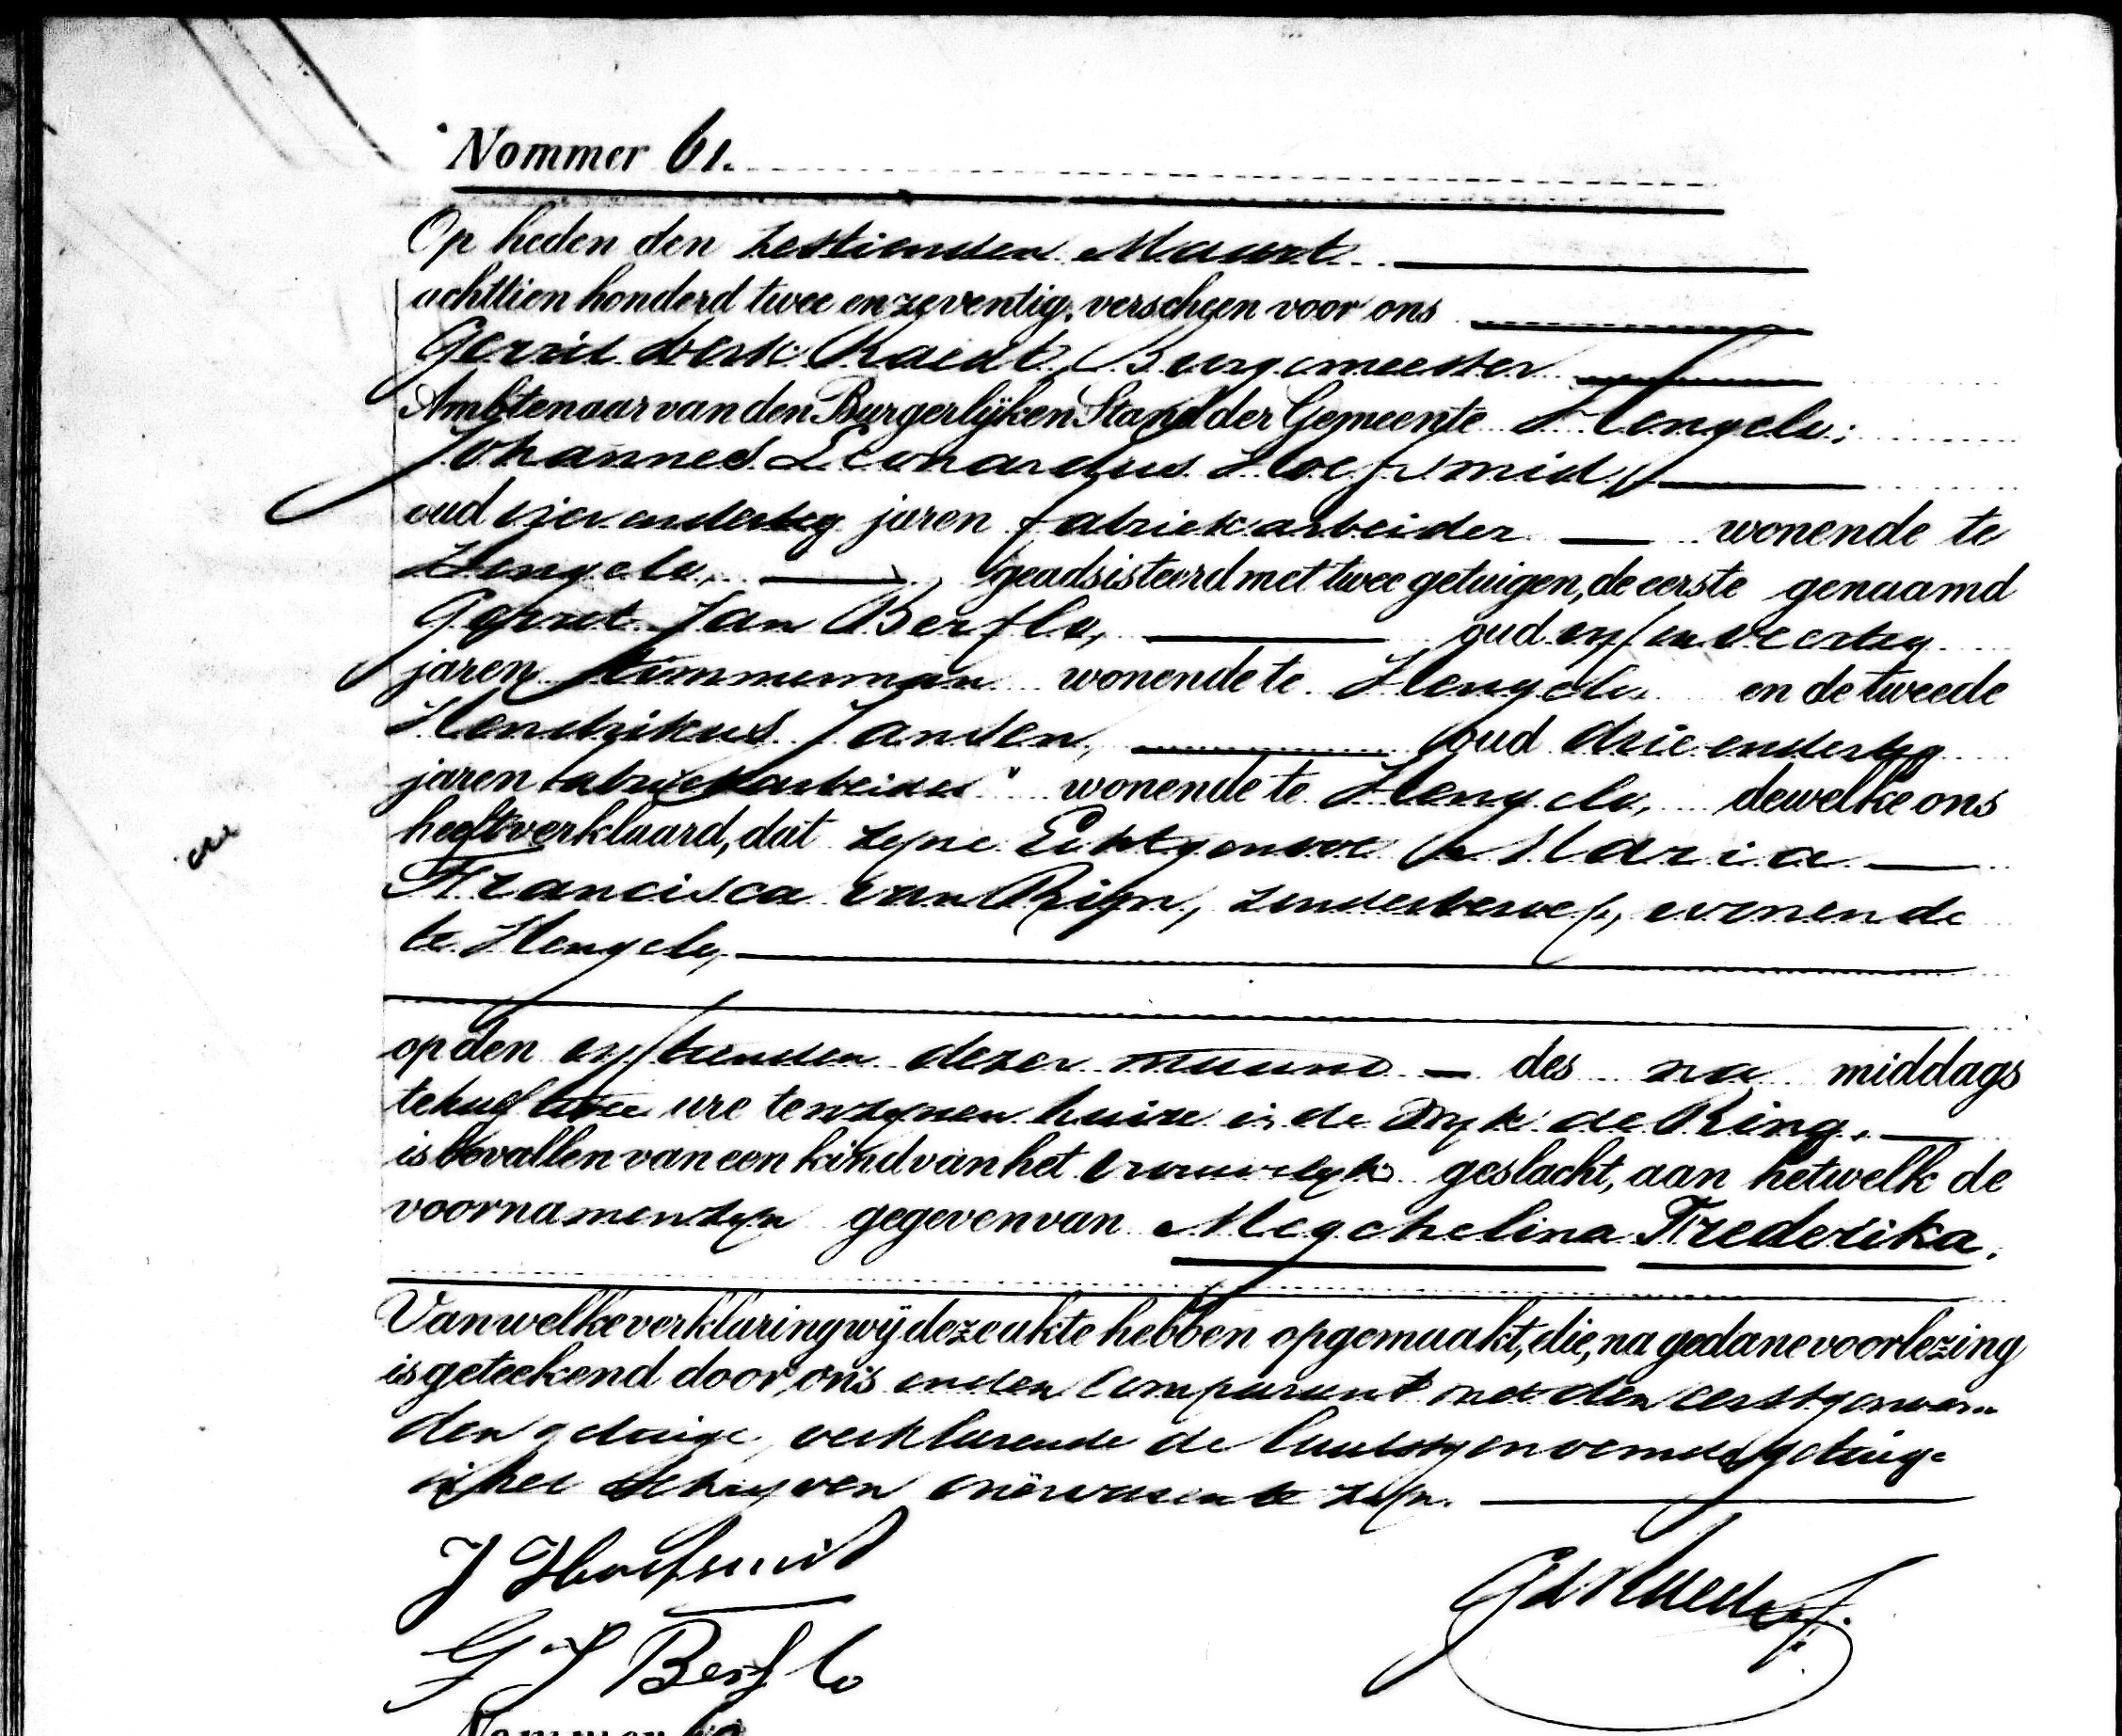 Nommer 61.
Op heden den zestienden Maart
achttien honderd twee en zeventig, verscheen voor ons
Gerrit Derk Raedt, Burgemeester
Ambtenaar van den Burgerlijken Stand der Gemeente Hengelo:
Johannes Leonardus Hoefsmid,
oud vier en dertig jaren fabriekarbeider wonende te
Hengelo, geadsisteerd met twee getuigen, de eerste genaamd
Gerrit Jan Berflo, oud vijf en veertig
jaren timmerman wonende te Hengelo en de tweede
Hendrikus Jansen, oud drie en dertig
jaren fabriekarbeider wonende te Hengelo, dewelke ons
heeft verklaard, dat zijne Echtgenoote Maria
Francisca van Rijn, zonder beroep, wonende
te Hengelo,
op den vijftienden dezer maand des na middags
te half twee ure ten zijnen huize in de Wijk de Ring,
is bevallen van een kind van het vrouwelijk geslacht, aan hetwelk de
voornamen zijn gegeven van Megchelina Frederika.
Van welke verklaring wij deze akte hebben opgemaakt, die, na gedane voorlezing
is geteekend door ons en den Comparant met den eerstgenoem-
den getuige, verklarende de laatstgenoemde getuige
in het schrijven onervaren te zijn.
J Hoefsmid
G J Berflo
Nommer